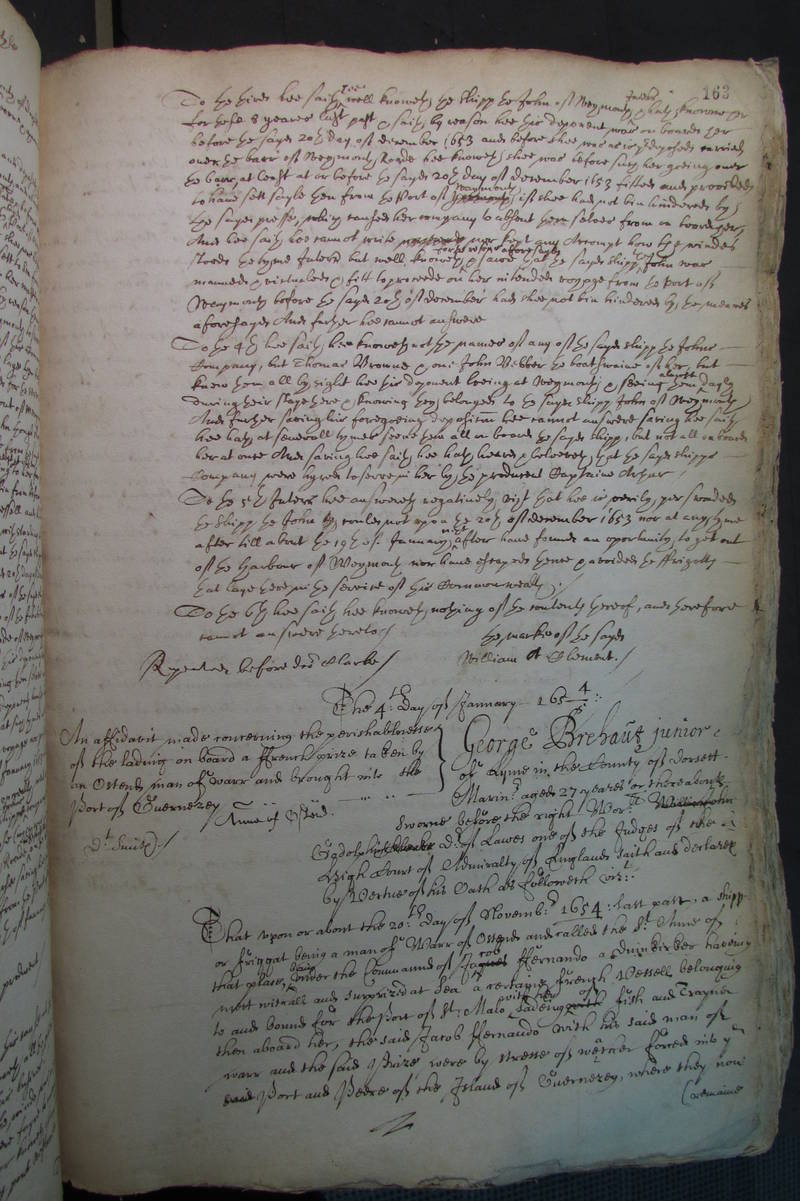 163
To the third hee saith hee well knoweth the shipp the John of Weymouth Interr: & hath knowne her
for these 8 yeares last past & saith by reason hee this deponent was on boarde her
before the sayd 20th day of december 1653 and before shee was as is predeposed carried
over the barr of Weymouth Roade hee knoweth shee was before such her goeing over
the barr, at least at or before the sayd 20th day of december 1653 fitted and provided
to have sett sayle then from the Port of Weymouth, if shee had not bin hindered by
the sayd presse, which caused her company to absent them selves from on board her,
And hee saith hee cannot write nor kept any Accompt how the windes
stoode the tyme Interr: but well knoweth for the reason aforesayd & saweth that the sayd shipp the John was
manned & victualled & fitt to proceede on her intended voyage from the Port of
Weymouth before the sayd 20th of december had shee not bin hindered by the meanes
aforesayd And further hee cannot answere
To the 4th hee saith hee knoweth not the names of any of the sayd shipp the Johns
Company, but Thomas Browne & one John Webber the boatswaine of her, but
knew them all by sight hee this deponent beeing at Weymouth & seeing them almost dayly
during their stay there & knowing they belonged to the sayd shipp John of Weymouth
And further saving his foregoeing deposition hee cannot answere saving hee saith
hee hath at severall tymes seene them all on board the sayd shipp, but not all on board
her at once And saving hee saith hee hath heard & beleeveth that the sayd shipps
Company were hyred to serve in her by the producent Captaine Arthur /
To the 5th Interr: hee answereth negatively vizt that hee is verily perswaded
the shipp the John could not upon the 20th of december 1653 nor at any tyme
after till about the 19th of January next after have found an oportunity to get out
of the harbour of Weymouth nor have escaped thence & avoided the ffriggotts
that laye there in the service of this Commonwealth /
To the 6th hee saith hee knoweth nothing of the contents thereof, and therefore
cannot answere thereto /
the marke of the sayd
Repeated before doctor Clarke / William Clement. /
The 4:th day of January 165 4/5:
An affidavit made concerning the perishablenesse
of the lading on board a ffrench prize taken by
an Ostend man of warr and brought into the
Port of Guernezey
Anne of Ostend.
Dt. Suit /
George Brehaut junior
of Lyme in the County of Dorsett
Marinr. aged 27 yeares or thereabouts
sworne before the right Worll: John
Godolphin Dr. of Lawes one of the Judges of the
High Court of Admiralty of England saith and declareth
by Vertue of his Oath as followeth vizt:
That upon or about the 20:th day of Novembr. 1654: last past, a shipp
or ffriggat being a man of Warr of Ostend and called the St. Anne of
that place, under the Command of Jacob ffernando a Duinkirker having
mett withall and surprized at Sea a certayne ffrench Vessell belonging
to and bound for the Port of St. Malo with her Lading of fish and Trayne
then aboard her, the said Jacob ffernando with his said man of
warr and the said Prize were by stresse of wether forced into ye
Port and Peere of the Island of Guernezey, where they now
(remaine